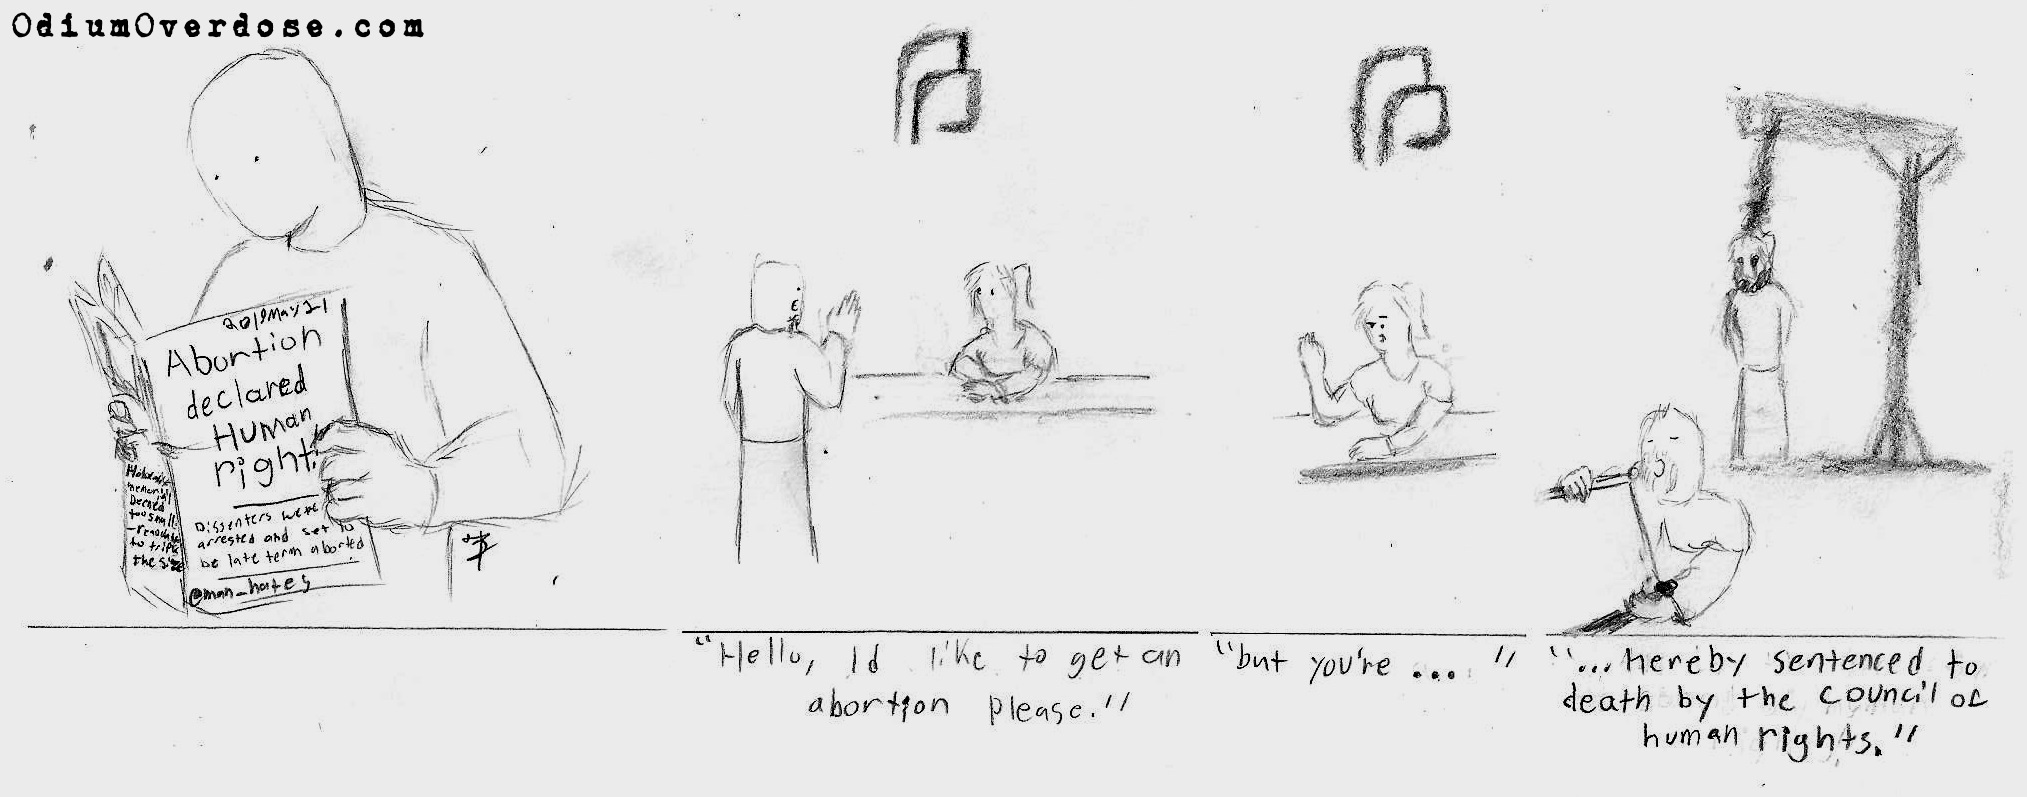 OdiumOverdose.com
2019May21
Abortion
declared
Human
right!
Dissenters were
arrested and set to
be late term aborted
@man_hates
memorial
Deemed
too small
to triple
the size
"Hello, Id like to get an
abortion please."
"but you're ... "
"...hereby sentenced to
death by the council of
human rights."